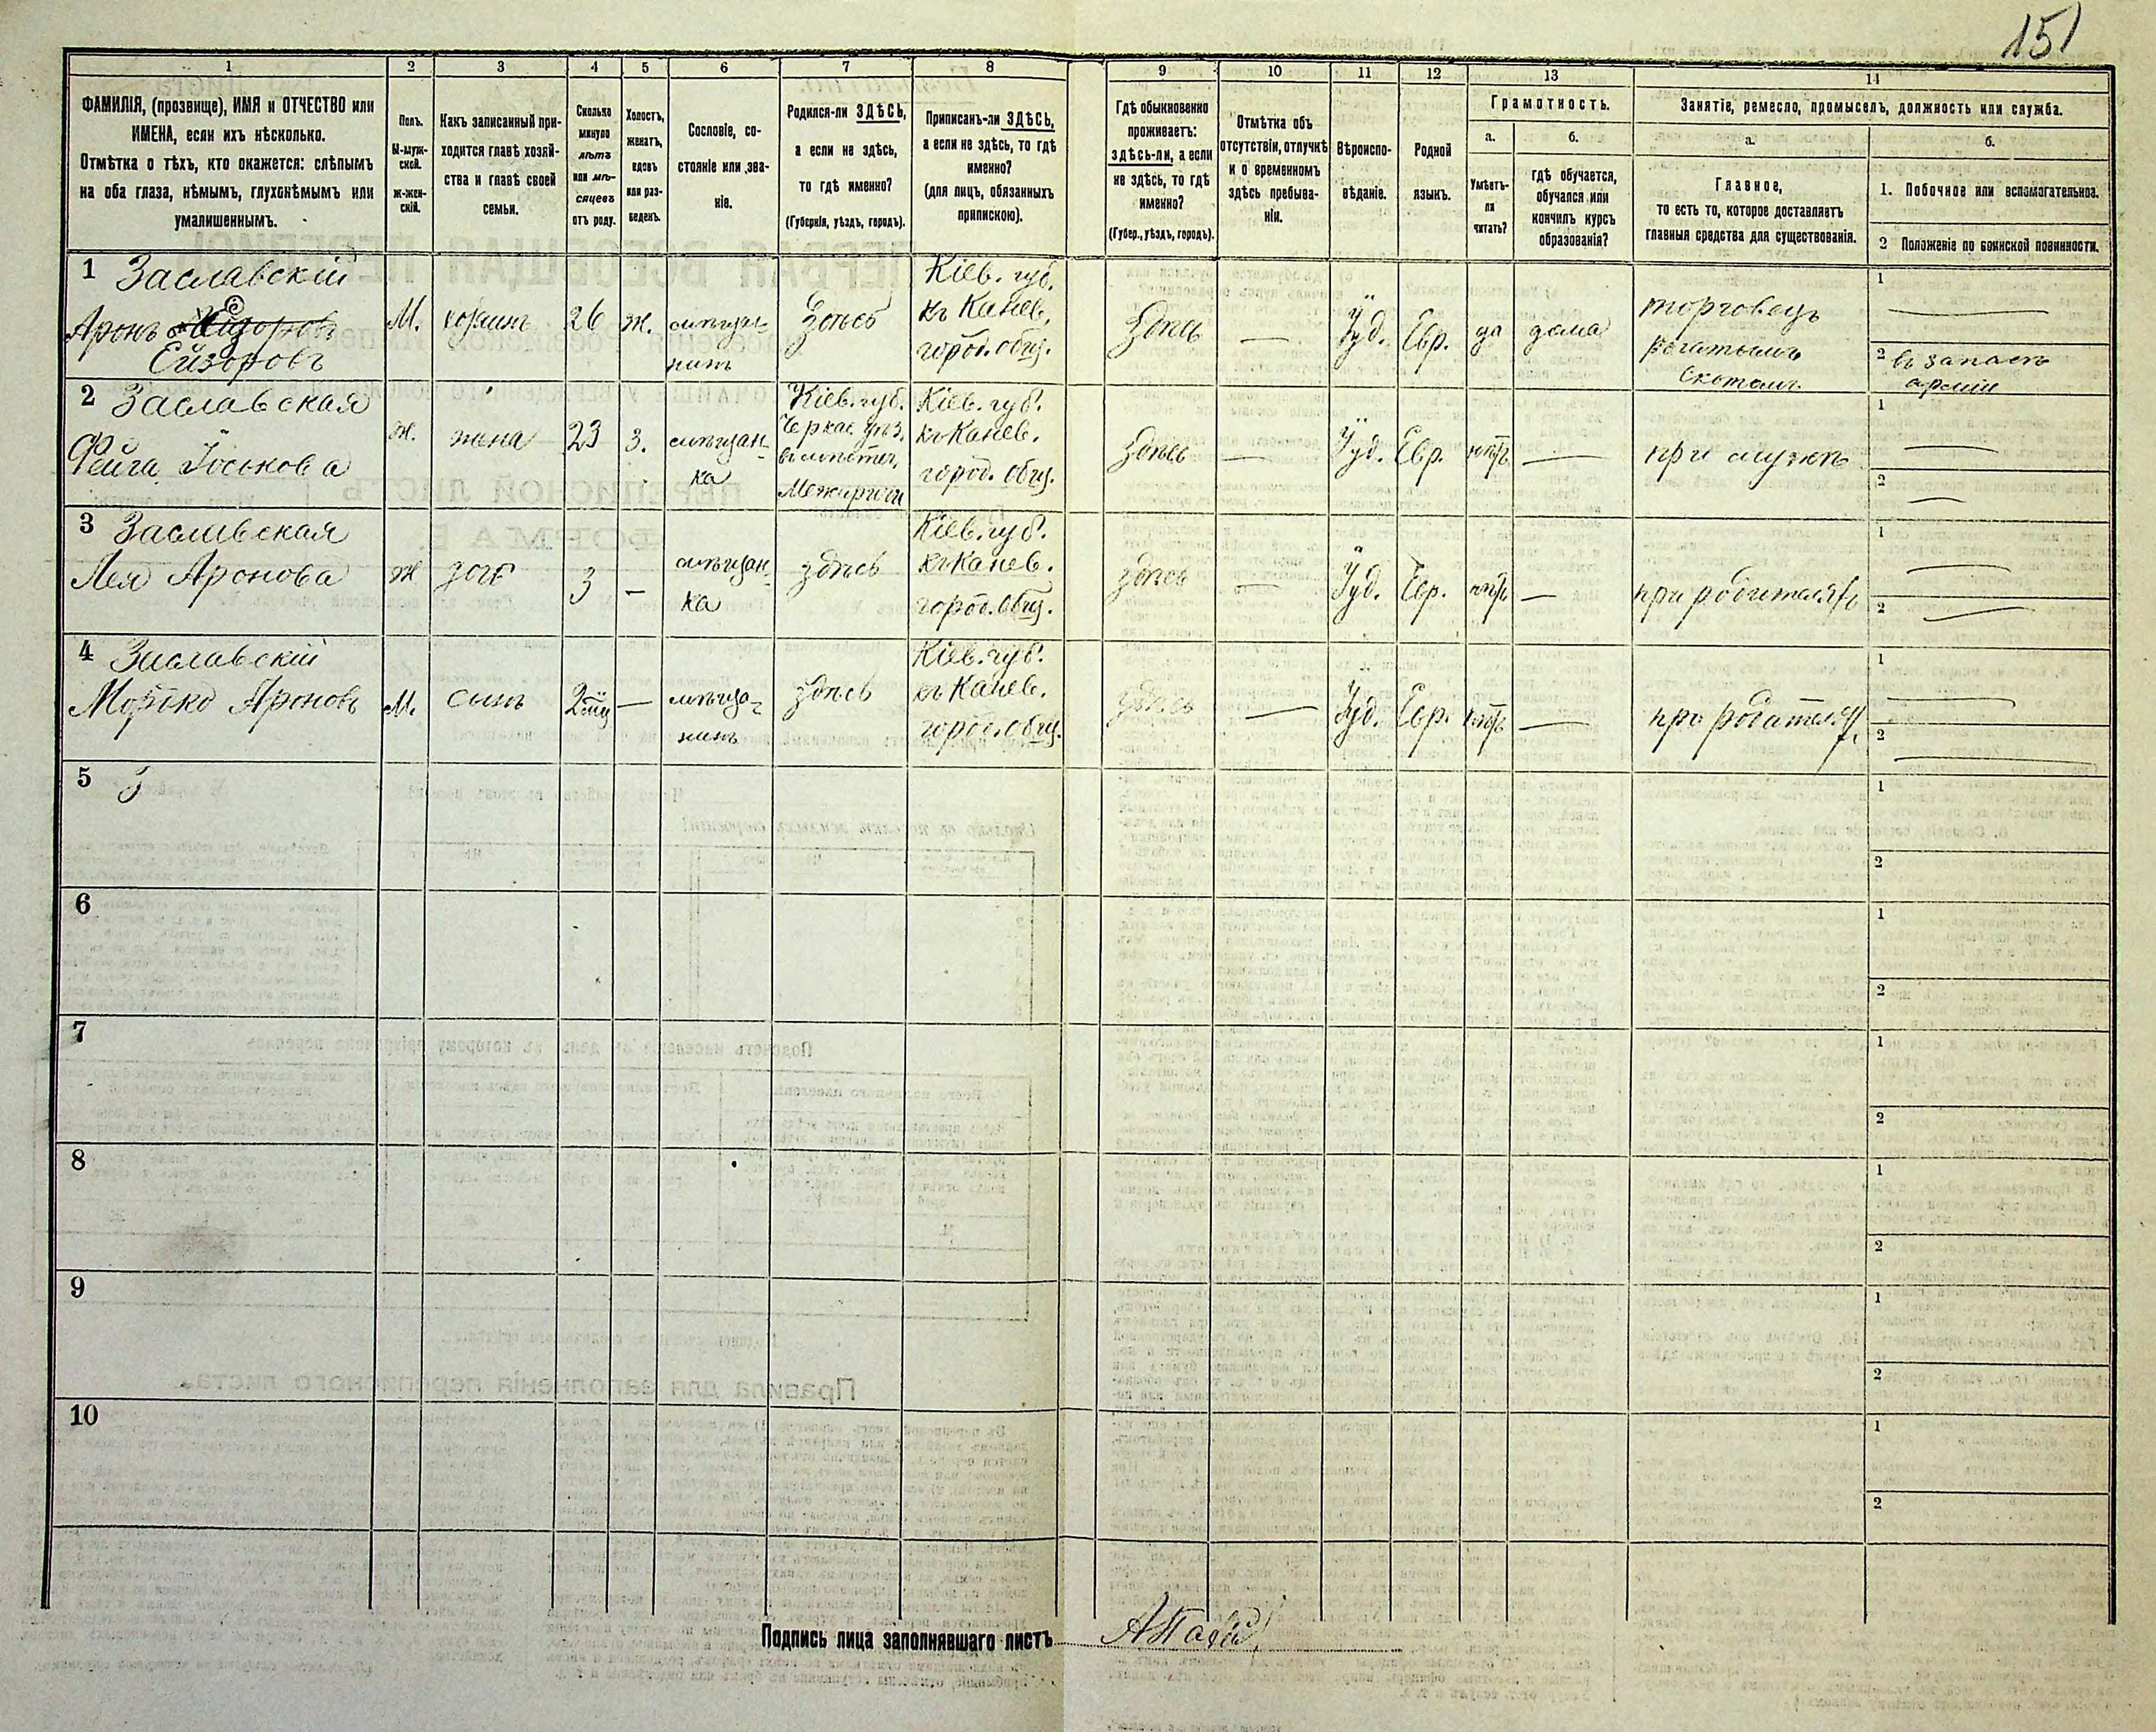 151
1
2
3
4
5
6
7
8
9
10
11
12
13
14
ФАМИЛІЯ, (прозвище), ИМЯ и ОТЧЕСТВО или
ИМЕНА, если ихъ нѣсколько.
Отмѣтка о тѣхъ, кто окажется: слѣпымъ
на оба глаза, нѣмымъ, глухонѣмымъ или
умалишеннымъ.
Полъ.
М-муж-
ской.
ж-жен-
скій.
Какъ записанный при-
ходится главѣ хозяй-
ства и главѣ своей
семьи.
Сколько
минуло
лѣтъ
или мѣ-
сяцевъ
отъ роду.
Холостъ,
женатъ,
вдовъ
или раз-
веденъ.
Сословіе, со-
стояніе или зва-
ніе.
Родился-ли ЗДѢСЬ,
а если не здѣсь,
то гдѣ именно?
(Губернія, уѣздъ, городъ).
Приписанъ-ли ЗДѢСЬ,
а если не здѣсь, то гдѣ
именно?
(для лицъ, обязанныхъ
припискою).
Гдѣ обыкновенно
проживаетъ:
здѣсь-ли, а если
не здѣсь, то гдѣ
именно?
(Губер., уѣздъ, городъ).
Отмѣтка объ
отсутствіи, отлучкѣ
и о временномъ
здѣсь пребыва-
ніи.
Вѣроиспо-
вѣданіе.
Родной
языкъ.
Грамотность.
а.
Умѣетъ-
ли
читать?
б.
гдѣ обучается,
обучался или
кончилъ курсъ
образованія?
Занятіе, ремесло, промыселъ, должность или служба.
а.
Главное,
то есть то, которое доставляетъ
главныя средства для существованія.
б.
1. Побочное или вспомогательное.
2 Положеніе по воинской повинности.
1 Заславскій
Аронъ
Ейзоровъ
М.
хозяинъ
26
ж.
мѣща-
нинъ
Здѣсь
Кіев. губ.
къ Канев.
город. общ.
Здѣсь
—
Іуд.
Евр.
да
дома
торговецъ
рогатымъ
скотомъ
1 —
2 въ запасѣ
арміи
2 Заславская
Фейга Іоськова
ж.
жена
23
з.
мѣщан-
ка
Кіев. губ.
Черкас. уѣз.
въ мѣстеч.
Межиричи
Кіев. губ.
къ Канев.
город. общ.
Здѣсь
—
Іуд.
Евр.
нѣтъ
—
при мужѣ
1 —
2 —
3 Заславская
Лея Аронова
ж
дочь
3
—
мѣщан-
ка
здѣсь
Кіев. губ.
къ Канев.
город. общ.
здѣсь
—
Іуд.
Евр.
нѣтъ
—
при родителяхъ
1 —
2 —
4 Заславскій
Мошко Ароновъ
М.
сынъ
2 мѣц
—
мѣща-
нинъ
здѣсь
Кіев. губ.
къ Канев.
город. общ.
здѣсь
—
Іуд.
Евр.
нѣтъ
—
при родителях
1 —
2 —
5
1
2
6
1
2
7
1
2
8
1
2
9
1
2
10
1
2
Подпись лица заполнявшаго листъ